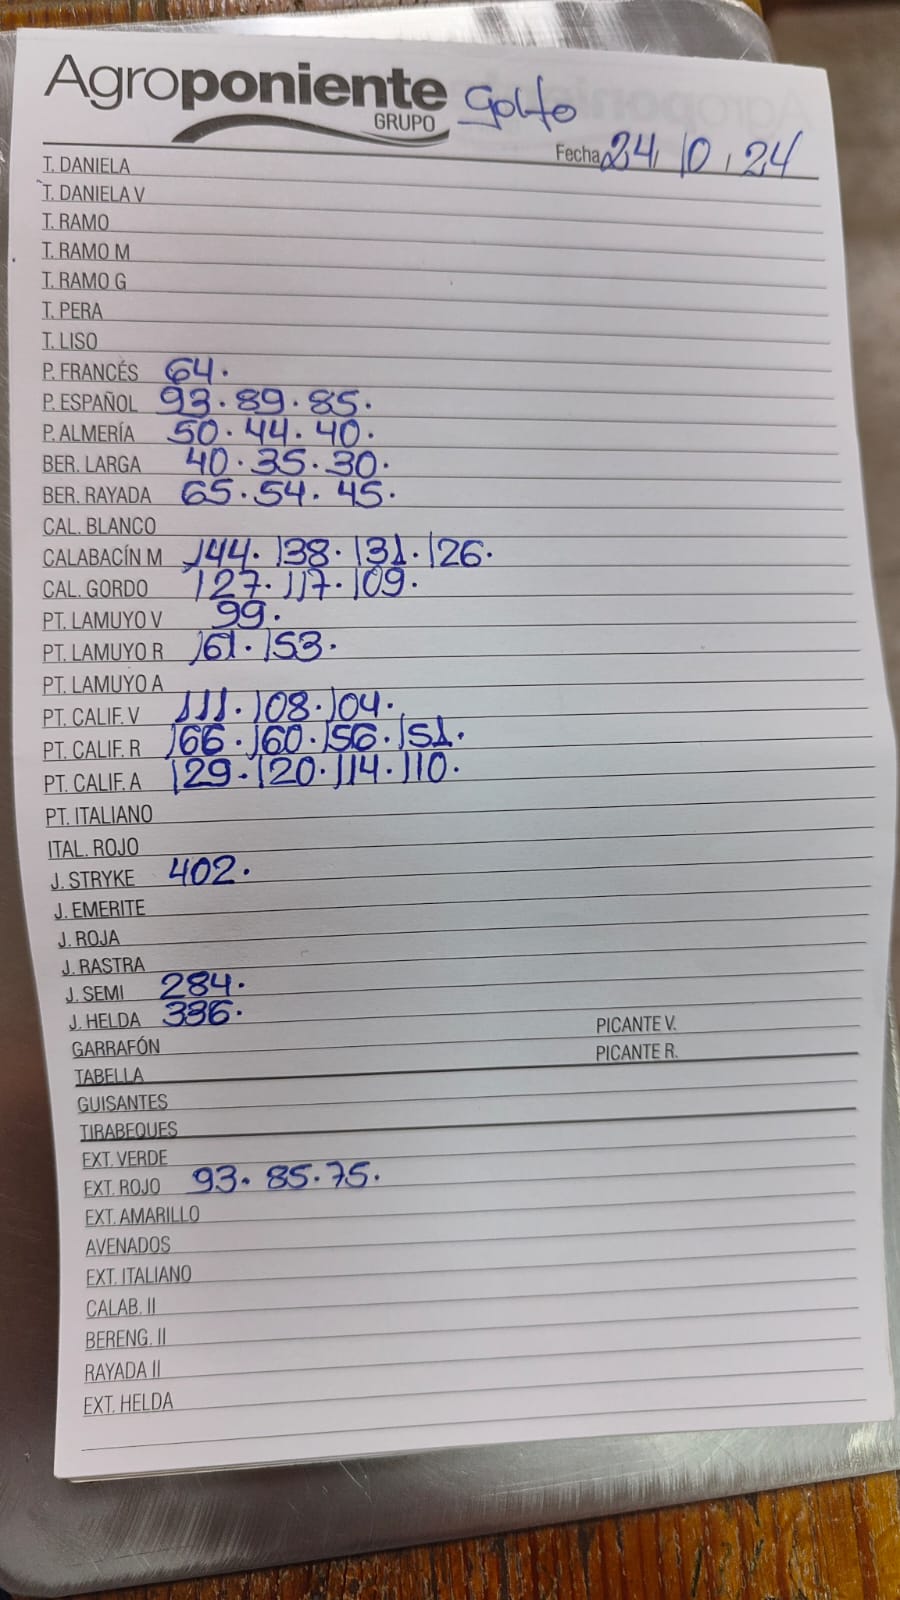 Agroponiente
GRUPO
Golfo
Fecha 24, 10, 24
T. DANIELA
T. DANIELA V
T. RAMO
T. RAMO M
T. RAMO G
T. PERA
T. LISO
P. FRANCÉS 64.
P. ESPAÑOL 93. 89. 85.
P. ALMERÍA 50. 44. 40.
BER. LARGA 40. 35. 30.
BER. RAYADA 65. 54. 45.
CAL. BLANCO
CALABACÍN M 144. 138. 131. 126.
CAL. GORDO 127. 117. 109.
PT. LAMUYO V 99.
PT. LAMUYO R 161. 153.
PT. LAMUYO A
PT. CALIF. V 111. 108. 104.
PT. CALIF. R 166. 160. 156. 151.
PT. CALIF. A 129. 120. 114. 110.
PT. ITALIANO
ITAL. ROJO
J. STRYKE 402.
J. EMERITE
J. ROJA
J. RASTRA
J. SEMI 284.
J. HELDA 336.
GARRAFÓN PICANTE V.
TABELLA PICANTE R.
GUISANTES
TIRABEQUES
EXT. VERDE
EXT. ROJO 93. 85. 75.
EXT. AMARILLO
AVENADOS
EXT. ITALIANO
CALAB. II
BERENG. II
RAYADA II
EXT. HELDA